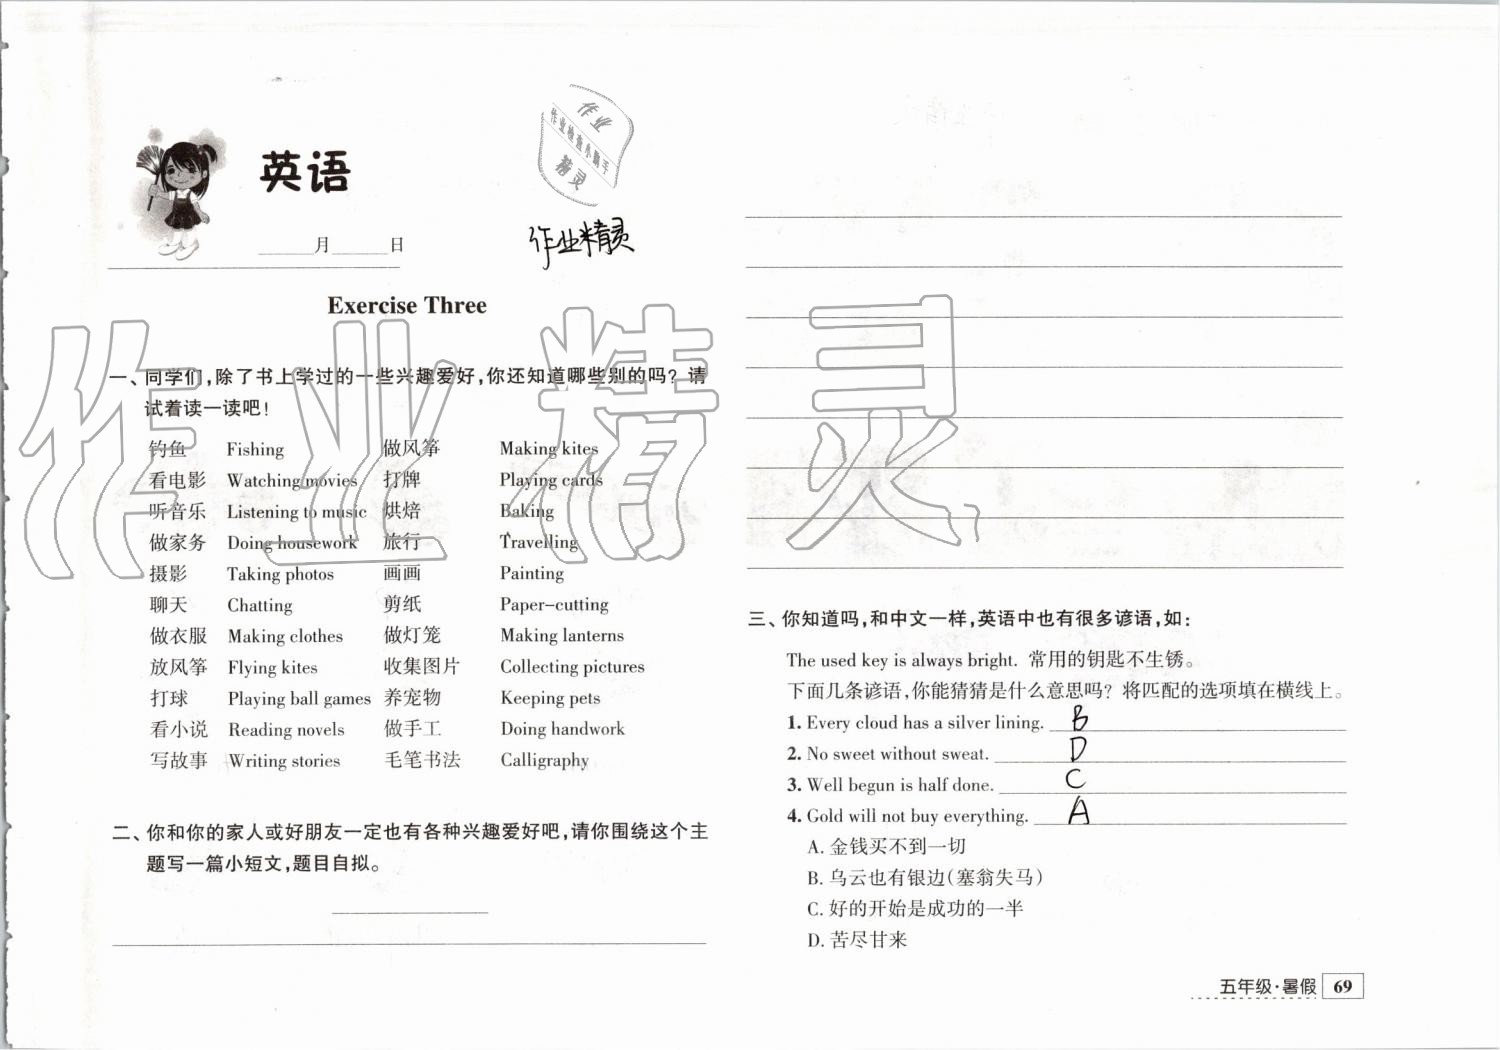 英语
作业
作业检查小助手
精灵
作业精灵
____月____日
Exercise Three
一、同学们,除了书上学过的一些兴趣爱好,你还知道哪些别的吗？请
试着读一读吧！
钓鱼 Fishing 做风筝 Making kites
看电影 Watching movies 打牌 Playing cards
听音乐 Listening to music 烘焙 Baking
做家务 Doing housework 旅行 Travelling
摄影 Taking photos 画画 Painting
聊天 Chatting 剪纸 Paper-cutting
做衣服 Making clothes 做灯笼 Making lanterns
放风筝 Flying kites 收集图片 Collecting pictures
打球 Playing ball games 养宠物 Keeping pets
看小说 Reading novels 做手工 Doing handwork
写故事 Writing stories 毛笔书法 Calligraphy
二、你和你的家人或好朋友一定也有各种兴趣爱好吧,请你围绕这个主
题写一篇小短文,题目自拟。
三、你知道吗,和中文一样,英语中也有很多谚语,如:
The used key is always bright. 常用的钥匙不生锈。
下面几条谚语,你能猜猜是什么意思吗？将匹配的选项填在横线上。
1. Every cloud has a silver lining. B
2. No sweet without sweat. D
3. Well begun is half done. C
4. Gold will not buy everything. A
A. 金钱买不到一切
B. 乌云也有银边(塞翁失马)
C. 好的开始是成功的一半
D. 苦尽甘来
五年级·暑假 69
作业精灵